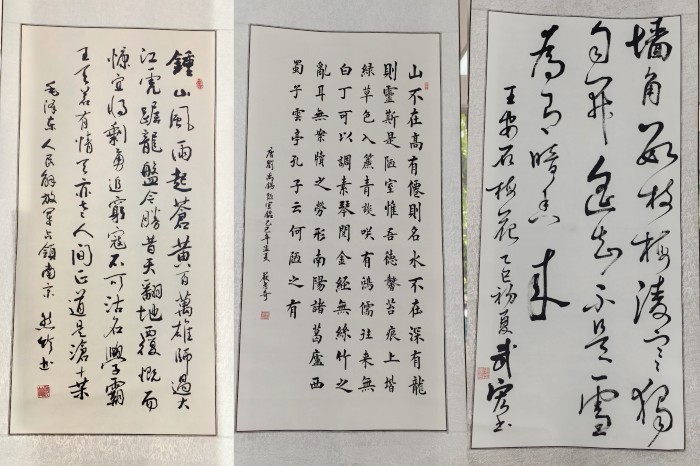 鍾山風雨起蒼黃百萬雄師過大
江虎踞龍盤今勝昔天翻地覆慨而
慷宜將剩勇追窮寇不可沽名學霸
王天若有情天亦老人間正道是滄桒
毛泽东人民解放军占領南京
山不在高有僊則名水不在深有龍
則靈斯是陋室惟吾德馨苔痕上堦
綠草色入簾青談咲有鴻儒往来無
白丁可以調素琴閱金經無絲竹之
亂耳無案牘之勞形南陽諸葛廬西
蜀子雲亭孔子云何陋之有
唐劉禹錫陋室銘乙巳年孟夏
墙角数枝梅凌寒獨
自開遥知不是雪
為有暗香来
王安石梅花乙巳初夏